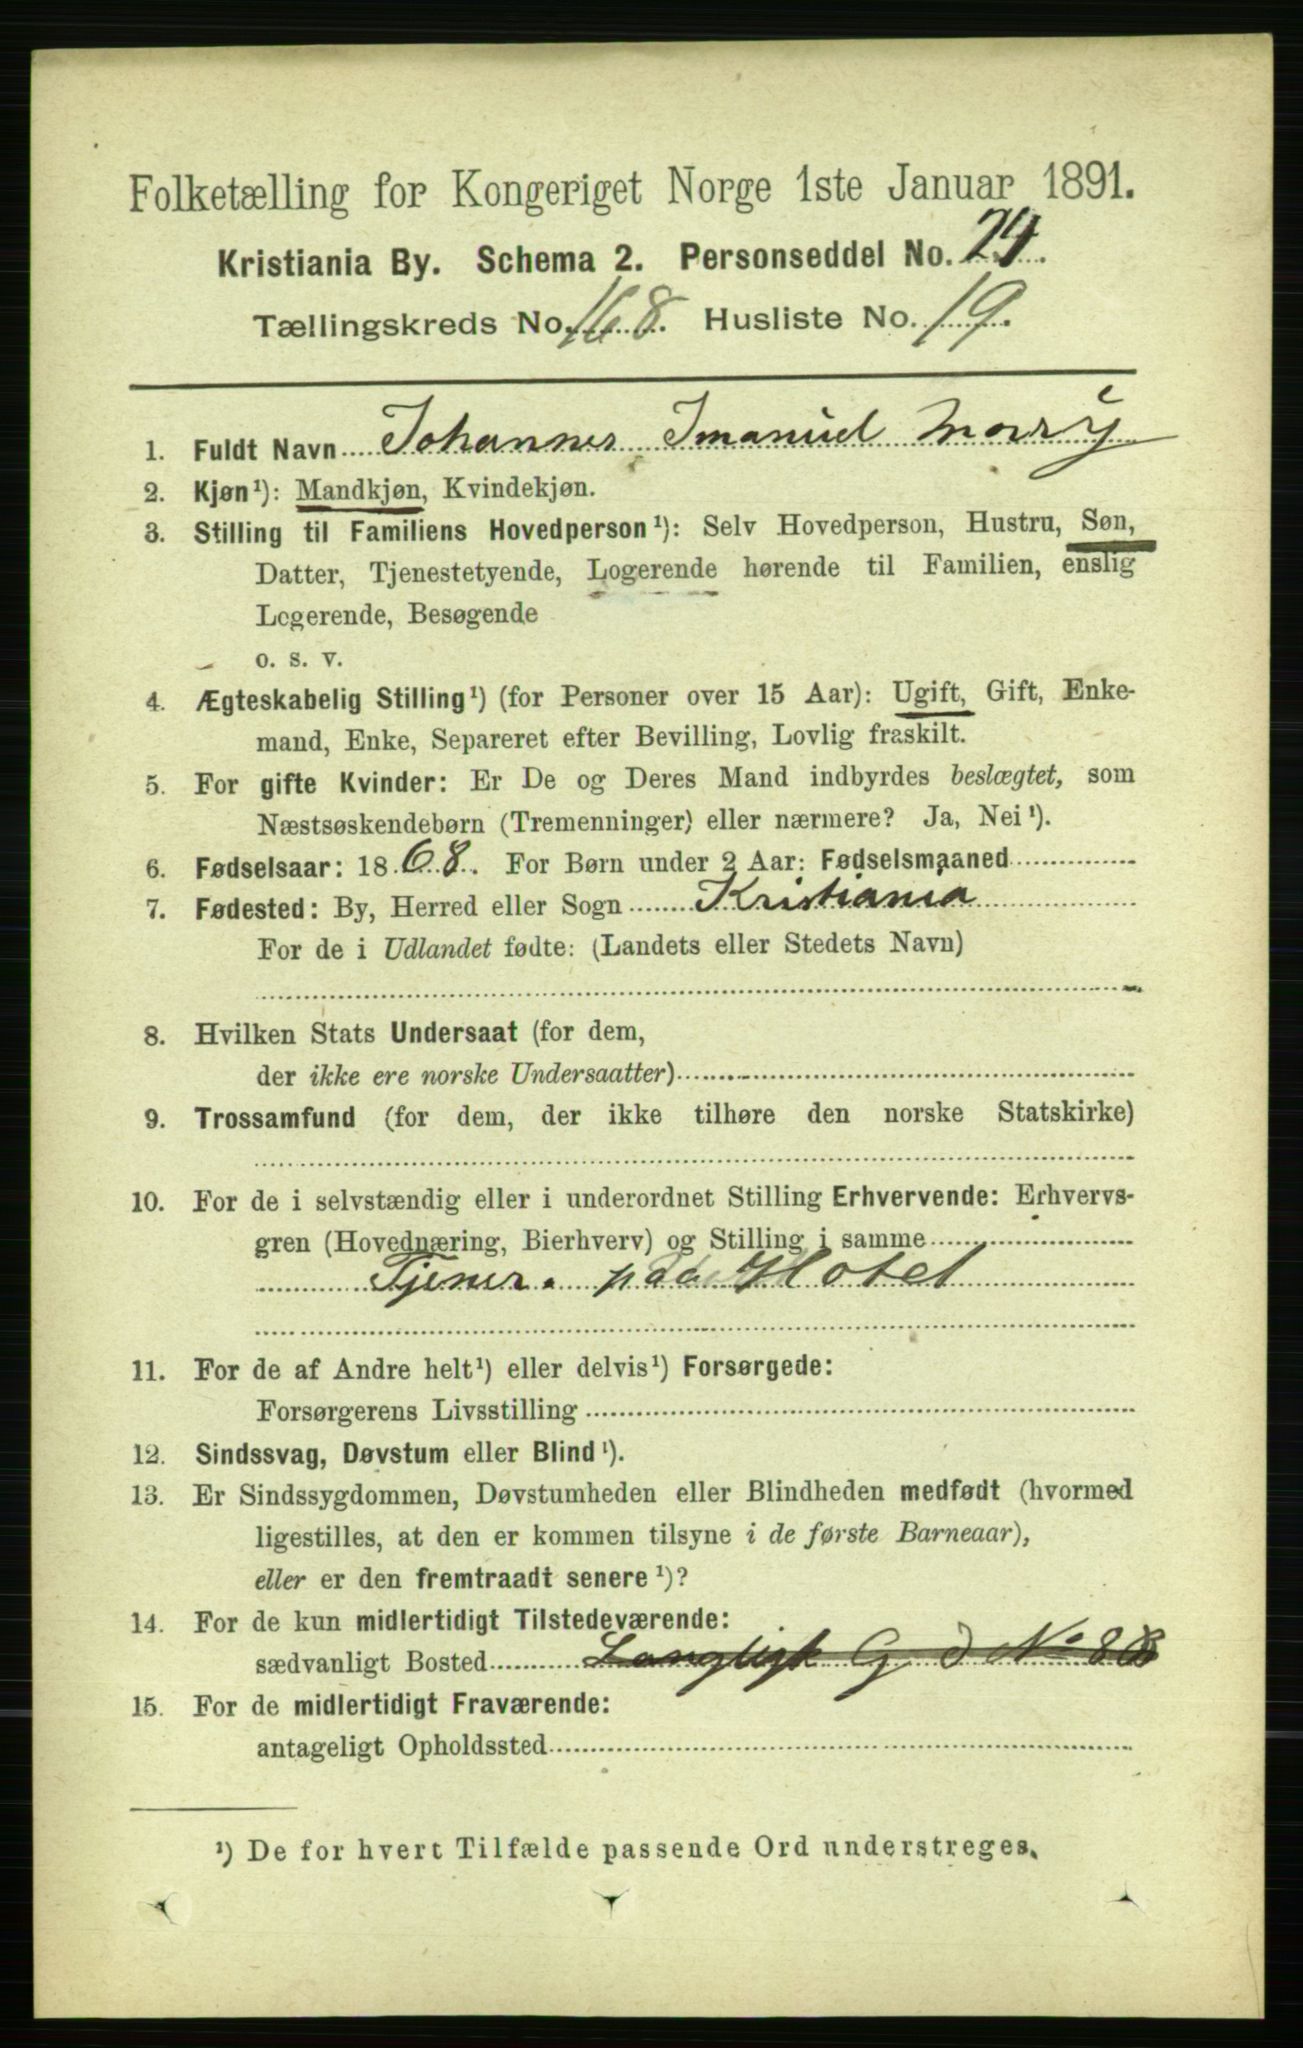 Folketælling for Kongeriget Norge 1ste Januar 1891.
Kristiania By. Schema 2. Personseddel No. 24.
Tællingskreds No. 168. Husliste No. 19.
1. Fuldt Navn Johannes Imanuel
2. Kjøn¹): Mandkjøn, Kvindekjøn.
3. Stilling til Familiens Hovedperson¹): Selv Hovedperson, Hustru, Søn,
Datter, Tjenestetyende, Logerende hørende til Familien, enslig
Logerende, Besøgende
o. s. v.
4. Ægteskabelig Stilling¹) (for Personer over 15 Aar): Ugift, Gift, Enke-
mand, Enke, Separeret efter Bevilling, Lovlig fraskilt.
5. For gifte Kvinder: Er De og Deres Mand indbyrdes beslægtet, som
Næstsøskendebørn (Tremenninger) eller nærmere? Ja, Nei¹).
6. Fødselsaar: 1868. For Børn under 2 Aar: Fødselsmaaned
7. Fødested: By, Herred eller Sogn Kristiania
For de i Udlandet fødte: (Landets eller Stedets Navn)
8. Hvilken Stats Undersaat (for dem,
der ikke ere norske Undersaatter)
9. Trossamfund (for dem, der ikke tilhøre den norske Statskirke)
10. For de i selvstændig eller i underordnet Stilling Erhvervende: Erhvervs-
gren (Hovednæring, Bierhverv) og Stilling i samme
Tjener. paa Hotel
11. For de af Andre helt¹) eller delvis¹) Forsørgede:
Forsørgerens Livsstilling
12. Sindssvag, Døvstum eller Blind¹).
13. Er Sindssygdommen, Døvstumheden eller Blindheden medfødt (hvormed
ligestilles, at den er kommen tilsyne i de første Barneaar),
eller er den fremtraadt senere¹)?
14. For de kun midlertidigt Tilstedeværende:
sædvanligt Bosted
15. For de midlertidigt Fraværende:
antageligt Opholdssted
¹) De for hvert Tilfælde passende Ord understreges.